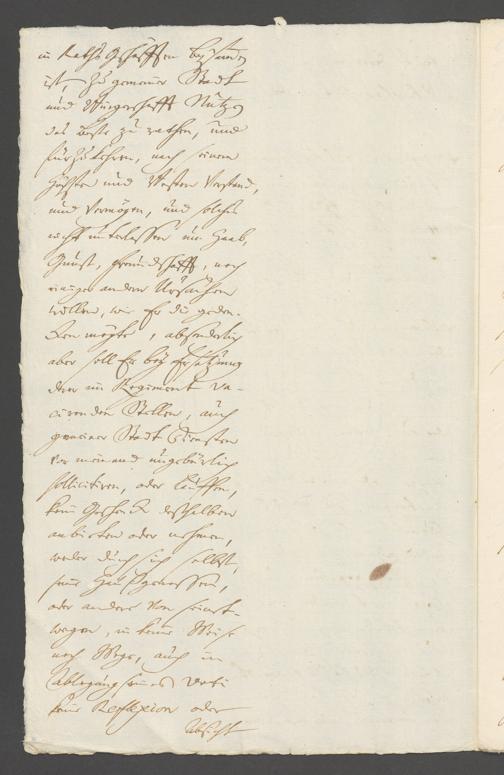 in Raths Geschäfften beysamen
ist, zu gemeiner Stadt
und Burgerschafft Nutzen
das beste zu rathen, und
fürzukehren, nach seinem
höchsten und besten Verstand,
und Vermögen, und solches
nicht unterlassen um Haab,
Gunst, Freundschafft, noch
einiger anderer Ursachen
willen, wie Er die geden-
cken möchte, absonderlich
aber soll Er bey Ersetzung
derer im Regiment va-
cirenden Stellen, auch
gemeiner Stadt Diensten
vor niemand ungebürlich
sollicitiren, oder lauffen,
kein Geschenck desthalben
anbieten oder nehmen,
weder durch sich selbst,
seine Haußgenossen,
oder andere von seinet-
wegen, in keine Weise
noch Wege, auch in
Ablegung seines Voti
keine Reflexion oder
Absicht